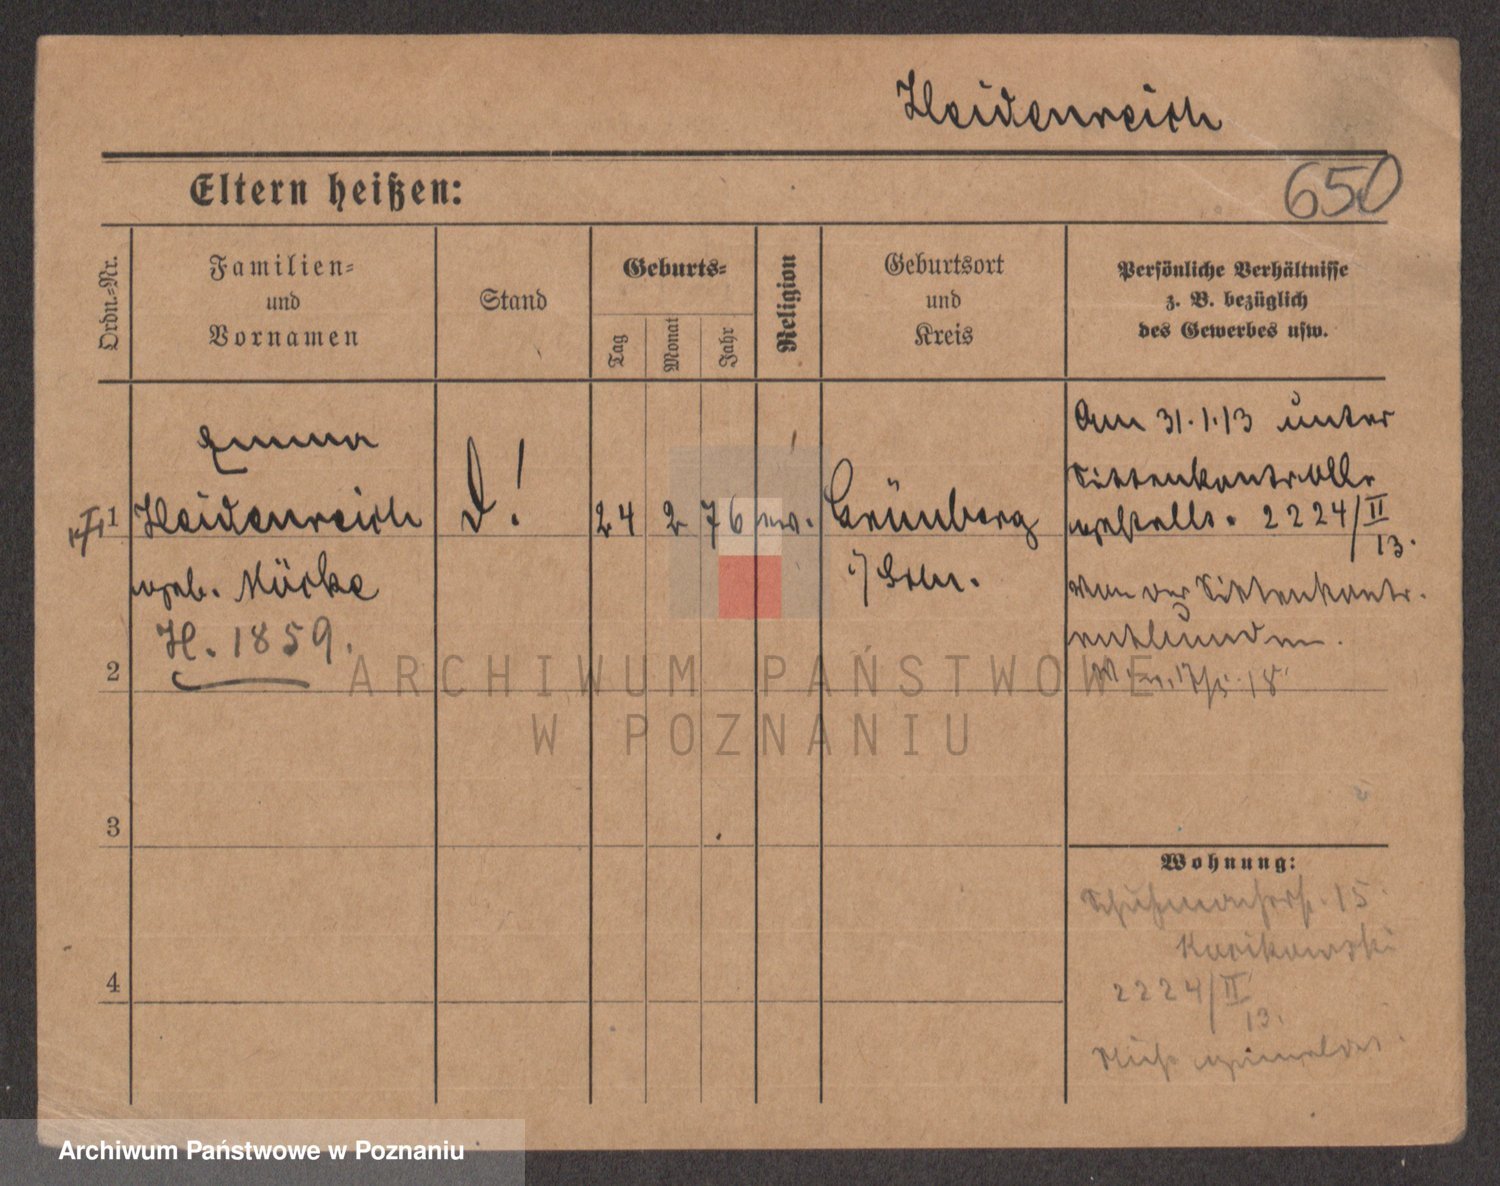 Heidenreich
650
Eltern heißen:
Ordn.-Nr.
Familien-
und
Vornamen
Stand
Geburts-
Tag
Monat
Jahr
Religion
Geburtsort
und
Kreis
Persönliche Verhältnisse
z. B. bezüglich
des Gewerbes usw.
Emma
1 Heidenreich D! 24 2 76 ev. Grünberg
geb.
i/ Schl.
H. 1859.
Am 31.1.13 unter
Sittenkontrolle
gestellt. 2224/II
13.
Von der Sittenkontr.
entbunden.
2
3
4
Wohnung:
Schuhmacherstr. 15
2224/II
13.
ARCHIWUM PAŃSTWOWE
W POZNANIU
Archiwum Państwowe w Poznaniu